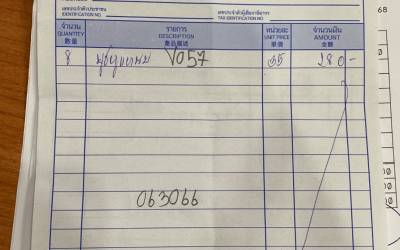 เลขประจำตัวประชาชน
IDENTIFICATION NO.
เลขประจำตัวผู้เสียภาษีอากร
TAX IDENTIFICATION NO.
68
จำนวน รายการ หน่วยละ จำนวนเงิน
QUANTITY DESCRIPTION UNIT PRICE AMOUNT
數量 單價 金額
8 V057 35 280-
063066